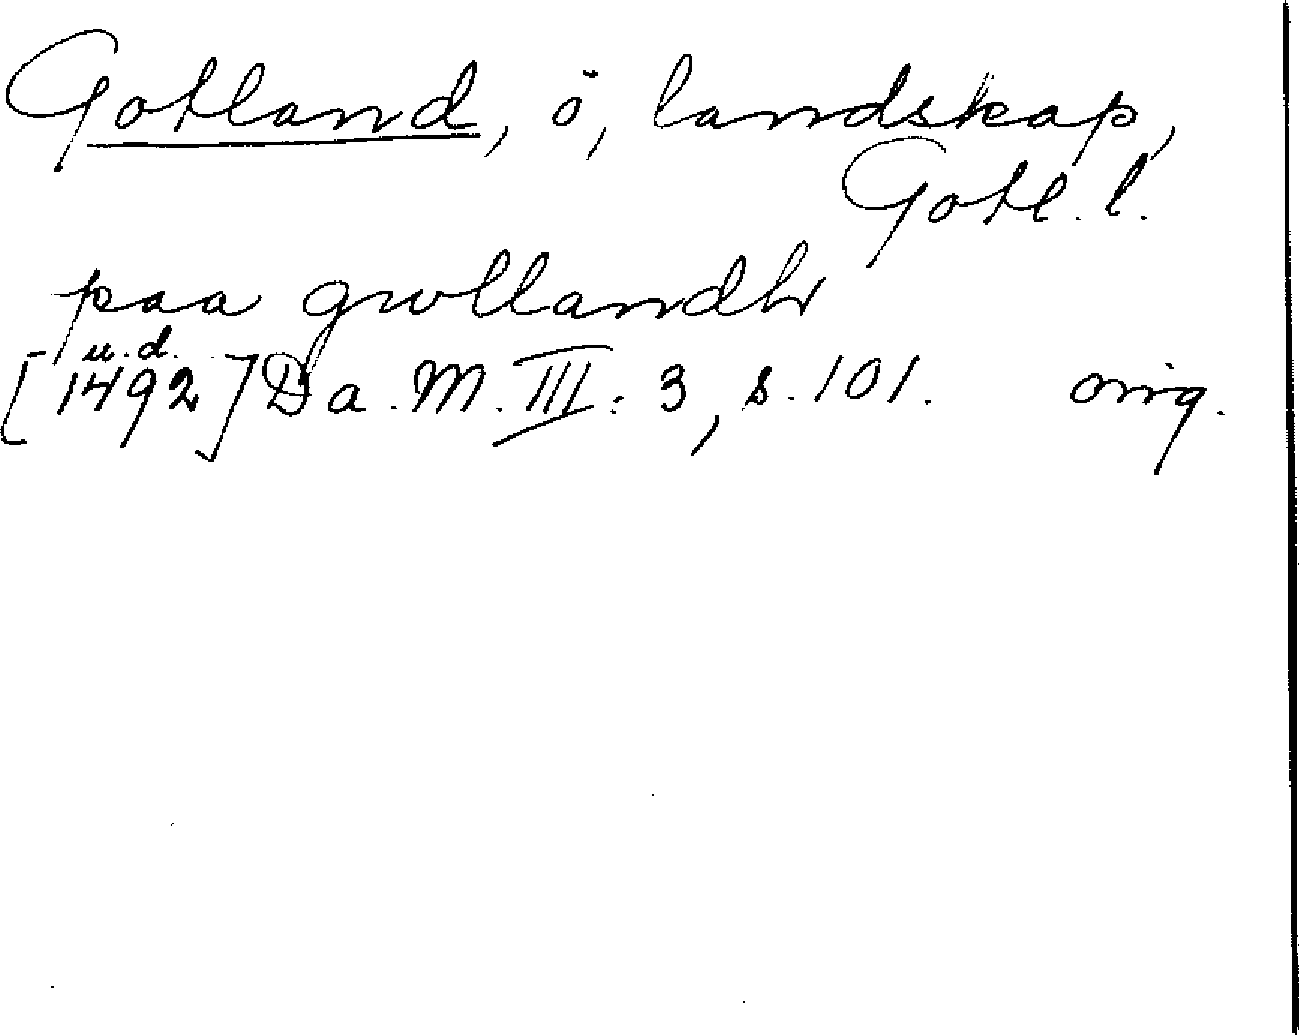 Gotland, ö, landskap,
Gotl. l.
paa gwllandh
u. d.
[1492] Da. M. III: 3, s. 101. orig.